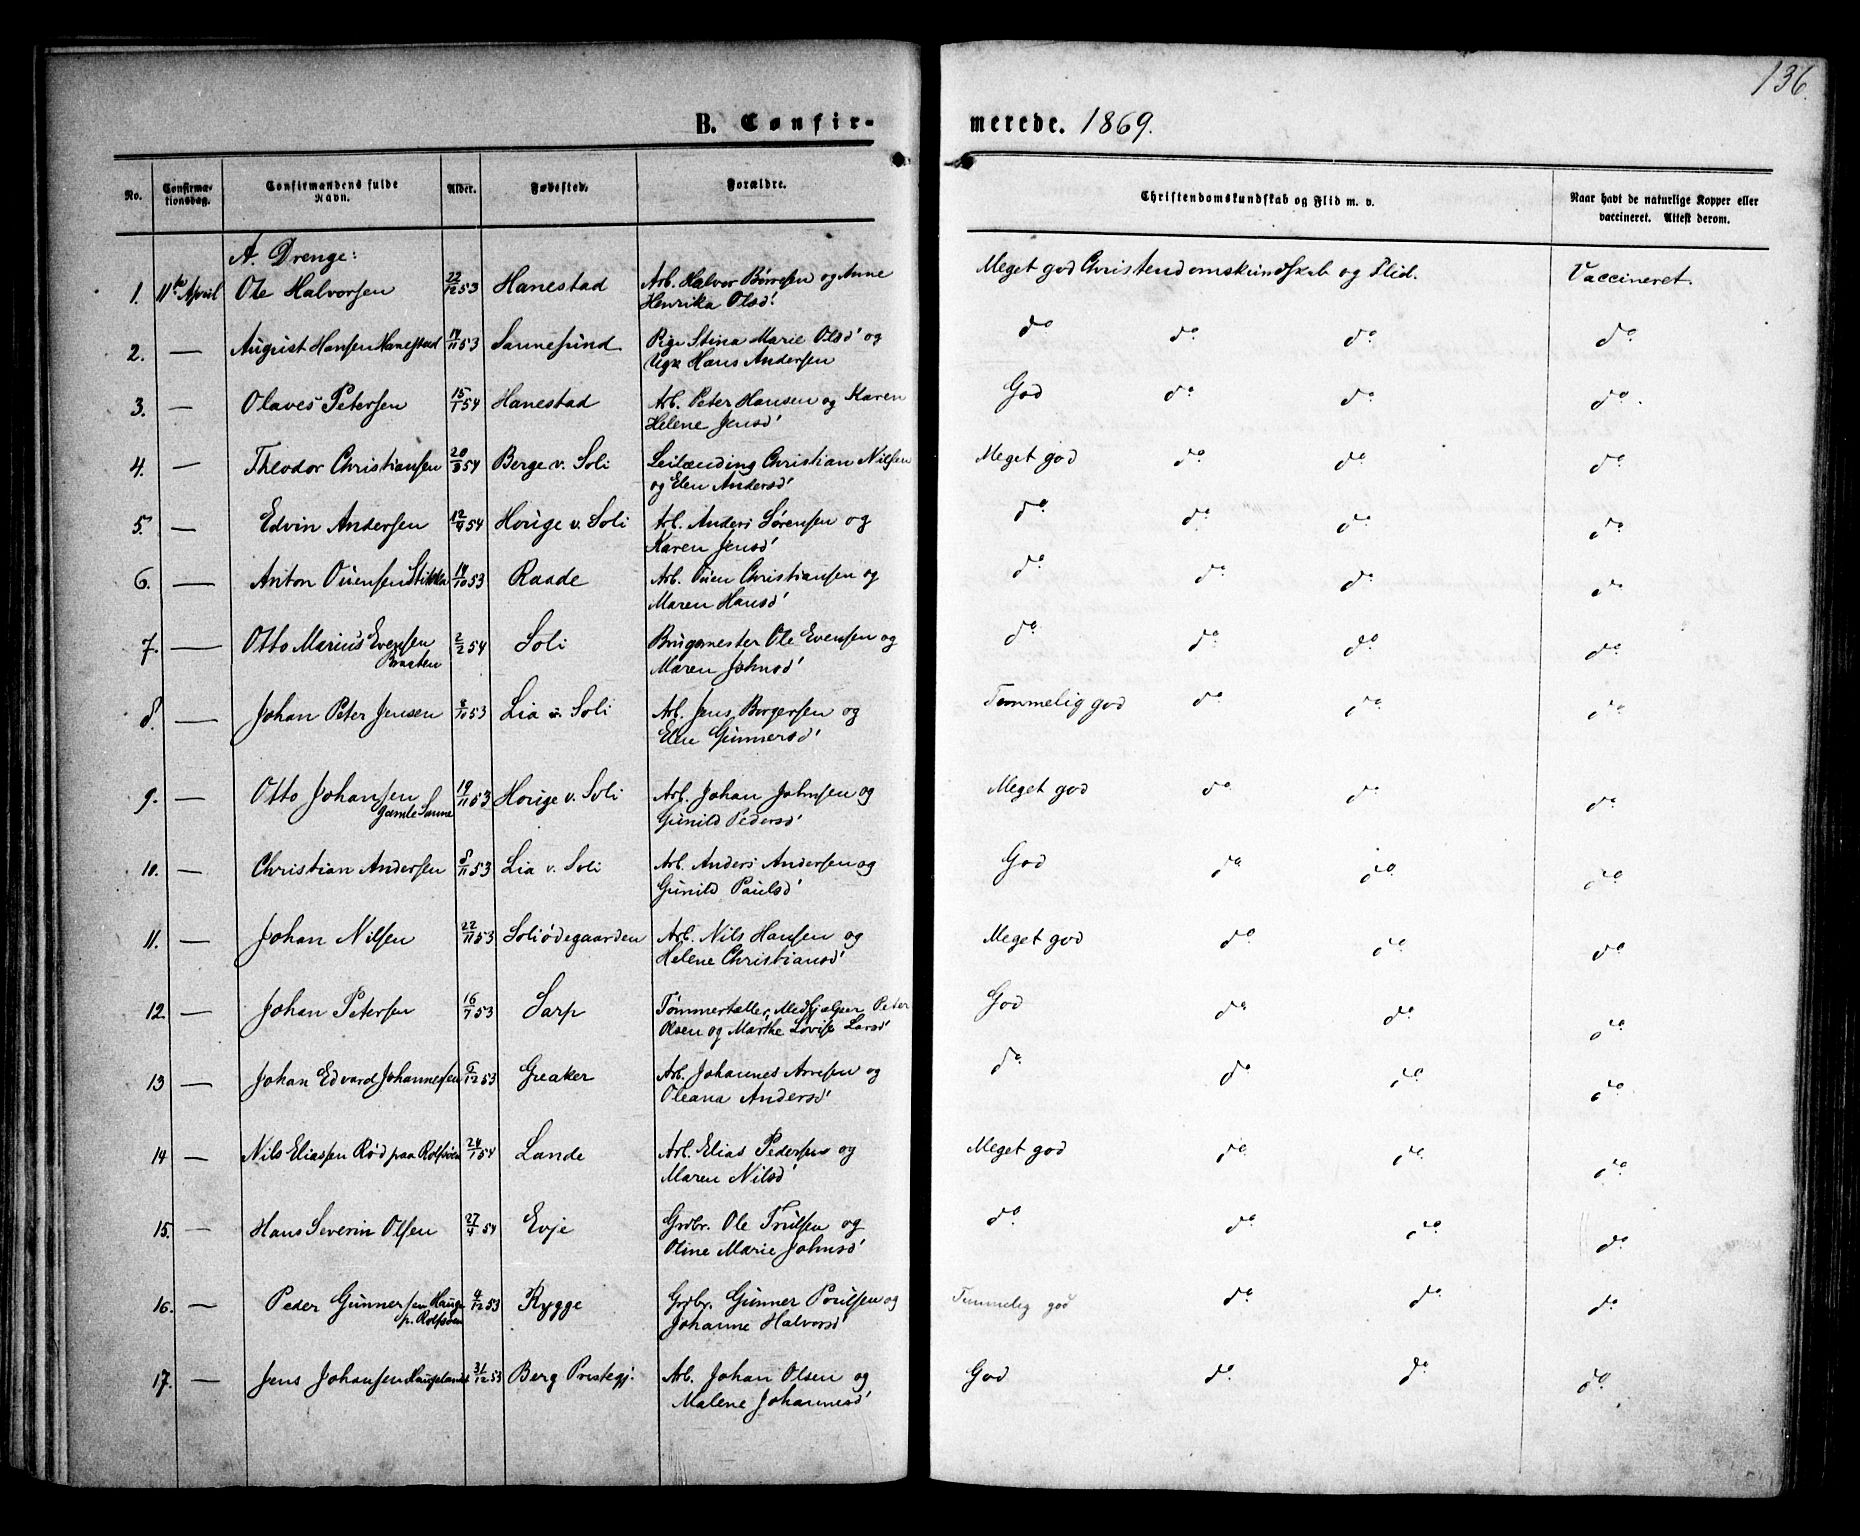 136.
B. Confir-
merede. 1869.
No.
Confirma-
tionsdag.
Confirmandens fulde
Navn.
Alder.
Fødested.
Forældre.
Christendomskundskab og Flid m. v.
Naar havt de naturlige Kopper eller
vaccineret. Attest derom.
A. Drenge:
1. 11te April Ole Halvorsen 22/12 53 Hanestad Arb. Halvor Børresen og Anne Meget god Christendomskundskab og Flid. Vaccineret.
Henrika Olsd'
2. — August Hansen Hanestad 14/11 53 Sannesund Pige Stina Marie Olsd' og do do do do
Ugk Hans Andersen
3. — Olaves Petersen 15/1 54 Hanestad Arb. Peter Hansen og Karen God do do do.
Helene Jensd'
4. — Theodor Christiansen 20/3 54 Berge v. Soli Leilænding Christian Nilsen Meget god do do do
og Elen Andersd'
5. — Edvin Andersen 12/4 54 Houge v. Soli Arb. Anders Sørensen og do do do do
Karen Jensd'
6. — Anton Ouensen Stikka 14/10 53 Raade Arb. Ouen Christiansen og do do do do
Maren Hansd'
7. — Otto Marius Evensen 2/2 54 Soli Brugsmester Ole Evensen og do do do do
Braaten Maren Johnsd'
8. — Johan Peter Jensen /10 53 Lia v. Soli Arb. Jens Borgersen og Temmelig god do do do
Elen Gunnersd'
9. — Otto Johansen 19/11 53 Houge v. Soli Arb. Johan Johnsen og Meget god do do do
Gamle Sanne Gunild Pedersd'
10. — Christian Andersen 8/11 53 Lia v. Soli Arb. Anders Andersen og God do do do
Gunild Paulsd'
11. — Johan Nilsen 22/11 53 Soliødegaarden Arb. Nils Hansen og Meget god do do do
Helene Christiansd'
12 — Johan Petersen 16/7 53 Sarp Tømmertæller, Medhjælper Peter God do do do
Olsen og Marthe Lovise Larsd'
13 — Johan Edvard Johannesen /12 53 Greaker Arb. Johannes Arnesen og do do do do
Oleana Andersd'
14 — Nils Eliassen Rød paa Rolfsøen 24/1 54 Lande Arb. Elias Pedersen og Meget god do do do
Maren Nilsd'
15. — Hans Severin Olsen 27/4 54 Evje Grdbr. Ole Trulsen og do do do do
Oline Marie Johnsd'
16. — Peder Gunnersen Hauge 4/12 53 Rygge Grdbr. Gunner Poulsen og Temmelig god do do do
p. Rolfsøen Johanne Halvorsd'
17. — Jens Johansen Haugelands 31/12 53 Berg Prestegj. Arb. Johan Olsen og God do do do
Malene Johannesd'